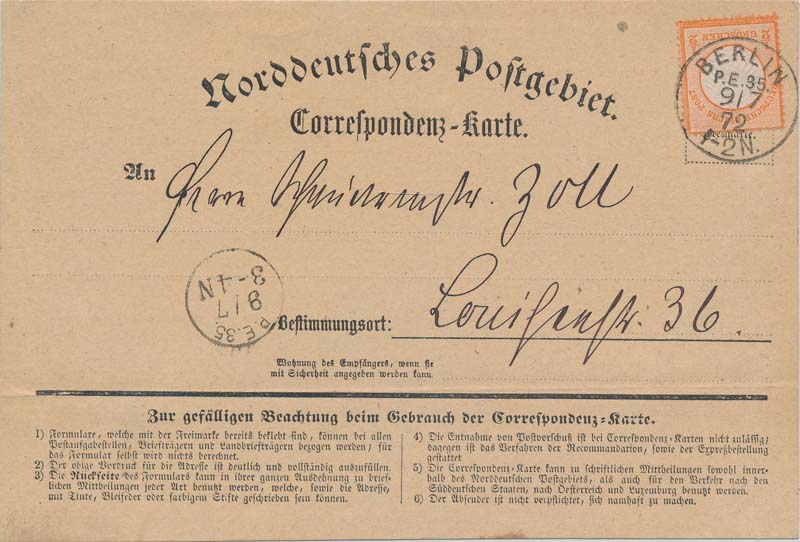 Norddeutsches Postgebiet.
Correspondenz-Karte.
BERLIN
P.E.35
9/7
72
1-2N.
Freimarke.
An
Herrn Zoll
3-4N
9/7
P.E.35.
Bestimmungsort:
Louisenstr. 36.
Wohnung des Empfängers, wenn sie
mit Sicherheit angegeben werden kann.
Zur gefälligen Beachtung beim Gebrauch der Correspondenz-Karte.
1) Formulare, welche mit der Freimarke bereits beklebt sind, können bei allen
Postaufgabestellen, Briefträgern und Landbriefträgern bezogen werden; für
das Formular selbst wird nichts berechnet.
2) Der obige Vordruck für die Adresse ist deutlich und vollständig auszufüllen.
3) Die Rückseite des Formulars kann in ihrer ganzen Ausdehnung zu brief-
lichen Mittheilungen jeder Art benutzt werden, welche, sowie die Adresse,
mit Tinte, Bleifeder oder farbigem Stifte geschrieben sein können.
4) Die Entnahme von Postvorschuß ist bei Correspondenz-Karten nicht zulässig;
dagegen ist das Verfahren der Recommandation, sowie der Expreßbestellung
gestattet.
5) Die Correspondenz-Karte kann zu schriftlichen Mittheilungen sowohl inner-
halb des Norddeutschen Postgebiets, als auch für den Verkehr nach den
Süddeutschen Staaten, nach Oesterreich und Luxemburg benutzt werden.
6) Der Absender ist nicht verpflichtet, sich namhaft zu machen.